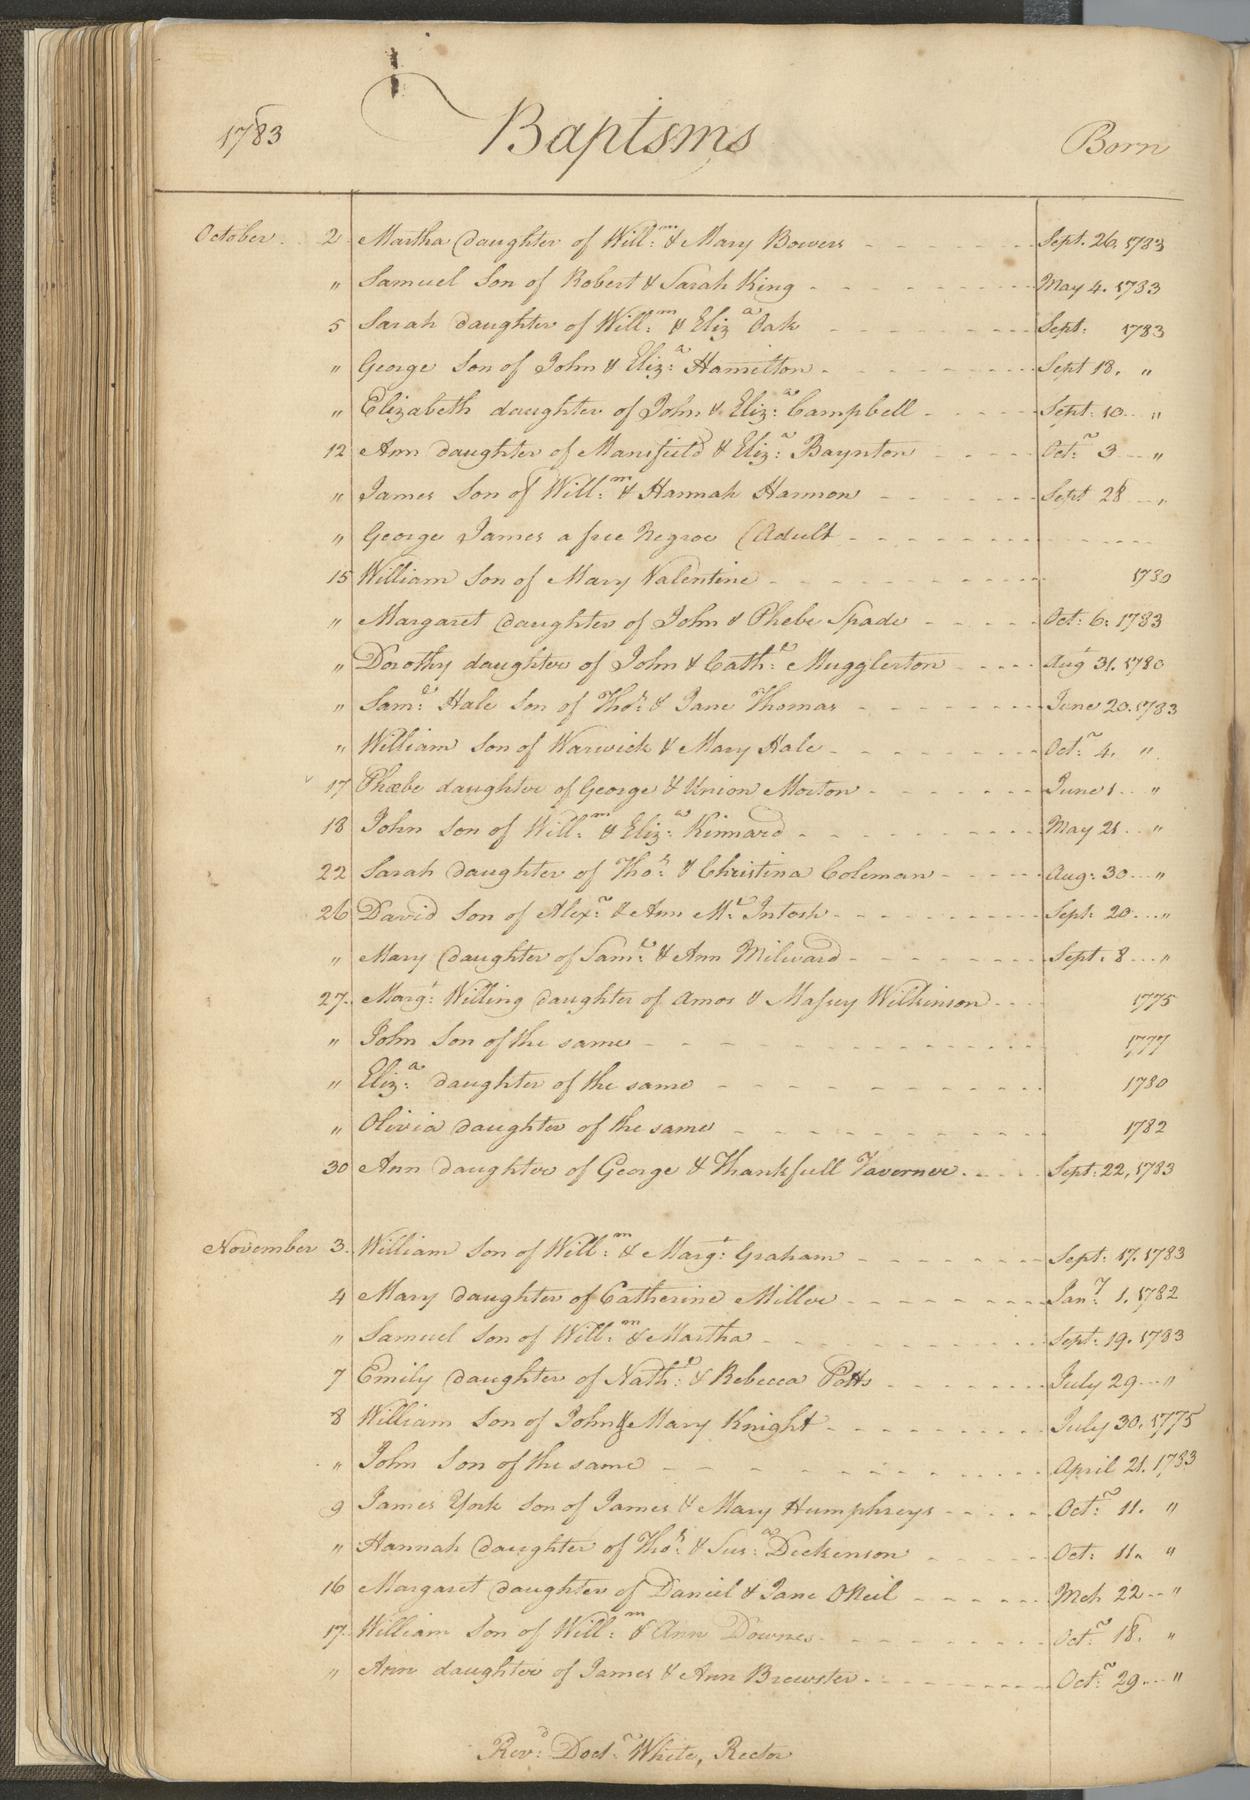 1783 Baptisms Born
October 2 Martha daughter of Will:m & Mary Bowers Sept. 26. 1783
" Samuel Son of Robert & Sarah King May 4. 1783
5 Sarah daughter of Will:m & Eliz:a Oak Sept: 1783
" George Son of John & Eliz:a Hamilton Sept 18. "
" Elizabeth daughter of John & Eliz:a Campbell Sept: 10 "
12 Ann daughter of Mansfield & Eliz:a Baynton Oct:r 3 "
" James Son of Will:m & Hannah Harmon Sept 28 "
" George James a free Negroe (Adult
15 William Son of Mary Valentine 1780
" Margaret daughter of John & Phebe Spade Oct: 6: 1783
" Dorothy daughter of John & Cath:e Mugglerton Augt 31. 1780
" Sam:l Hale Son of Tho:s & Jane Thomas June 20. 1783
" William Son of Warwick & Mary Hale Oct:r 4. "
17 Phœbe daughter of George & Union Morton June 1 "
18 John Son of Will:m & Eliz:a Kinnard May 21 "
22 Sarah daughter of Tho:s & Christina Coleman Aug: 30 "
26 David Son of Alex:r & Ann Mc Intosh Sept: 20 "
" Mary daughter of Sam:l & Ann Milward Sept: 8 "
27 Marg:t Willing daughter of Amos & Massey Wilkinson 1775
" John Son of the same 1777
" Eliz:a daughter of the same 1780
" Olivia daughter of the same 1782
30 Ann daughter of George & Thankfull Taverner Sept: 22, 1783
November 3 William Son of Will:m & Marg:t Graham Sept: 17. 1783
4 Mary daughter of Catherine Miller Jan:y 1. 1782
" Samuel Son of Will:m & Martha Sept: 19. 1783
7 Emily daughter of Nath:l & Rebecca Potts July 29 "
8 William Son of John & Mary Knight July 30. 1775
" John Son of the same April 21. 1783
9 James York Son of James & Mary Humphreys Oct:r 11. "
" Hannah daughter of Tho:s & Sus:a Dickinson Oct: 11. "
16 Margaret daughter of Daniel & Jane ONeil Mch 22 "
17 William Son of Will:m & Ann Downes Oct:r 18. "
" Ann daughter of James & Ann Brewster Oct:r 29 "
Rev:d Doct:r White, Rector